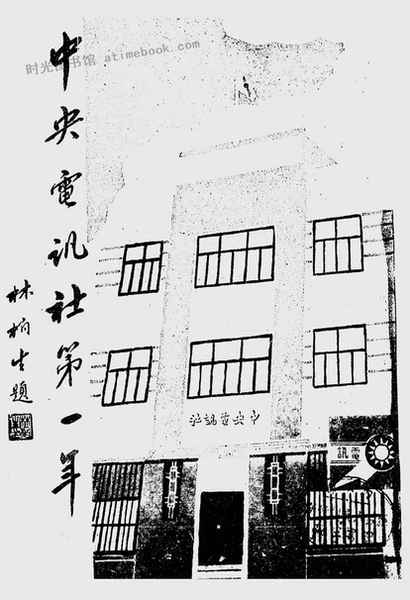 时光图书馆 atimebook.com
中央電訊社第一年
林柏生題
社訊電央中
訊電